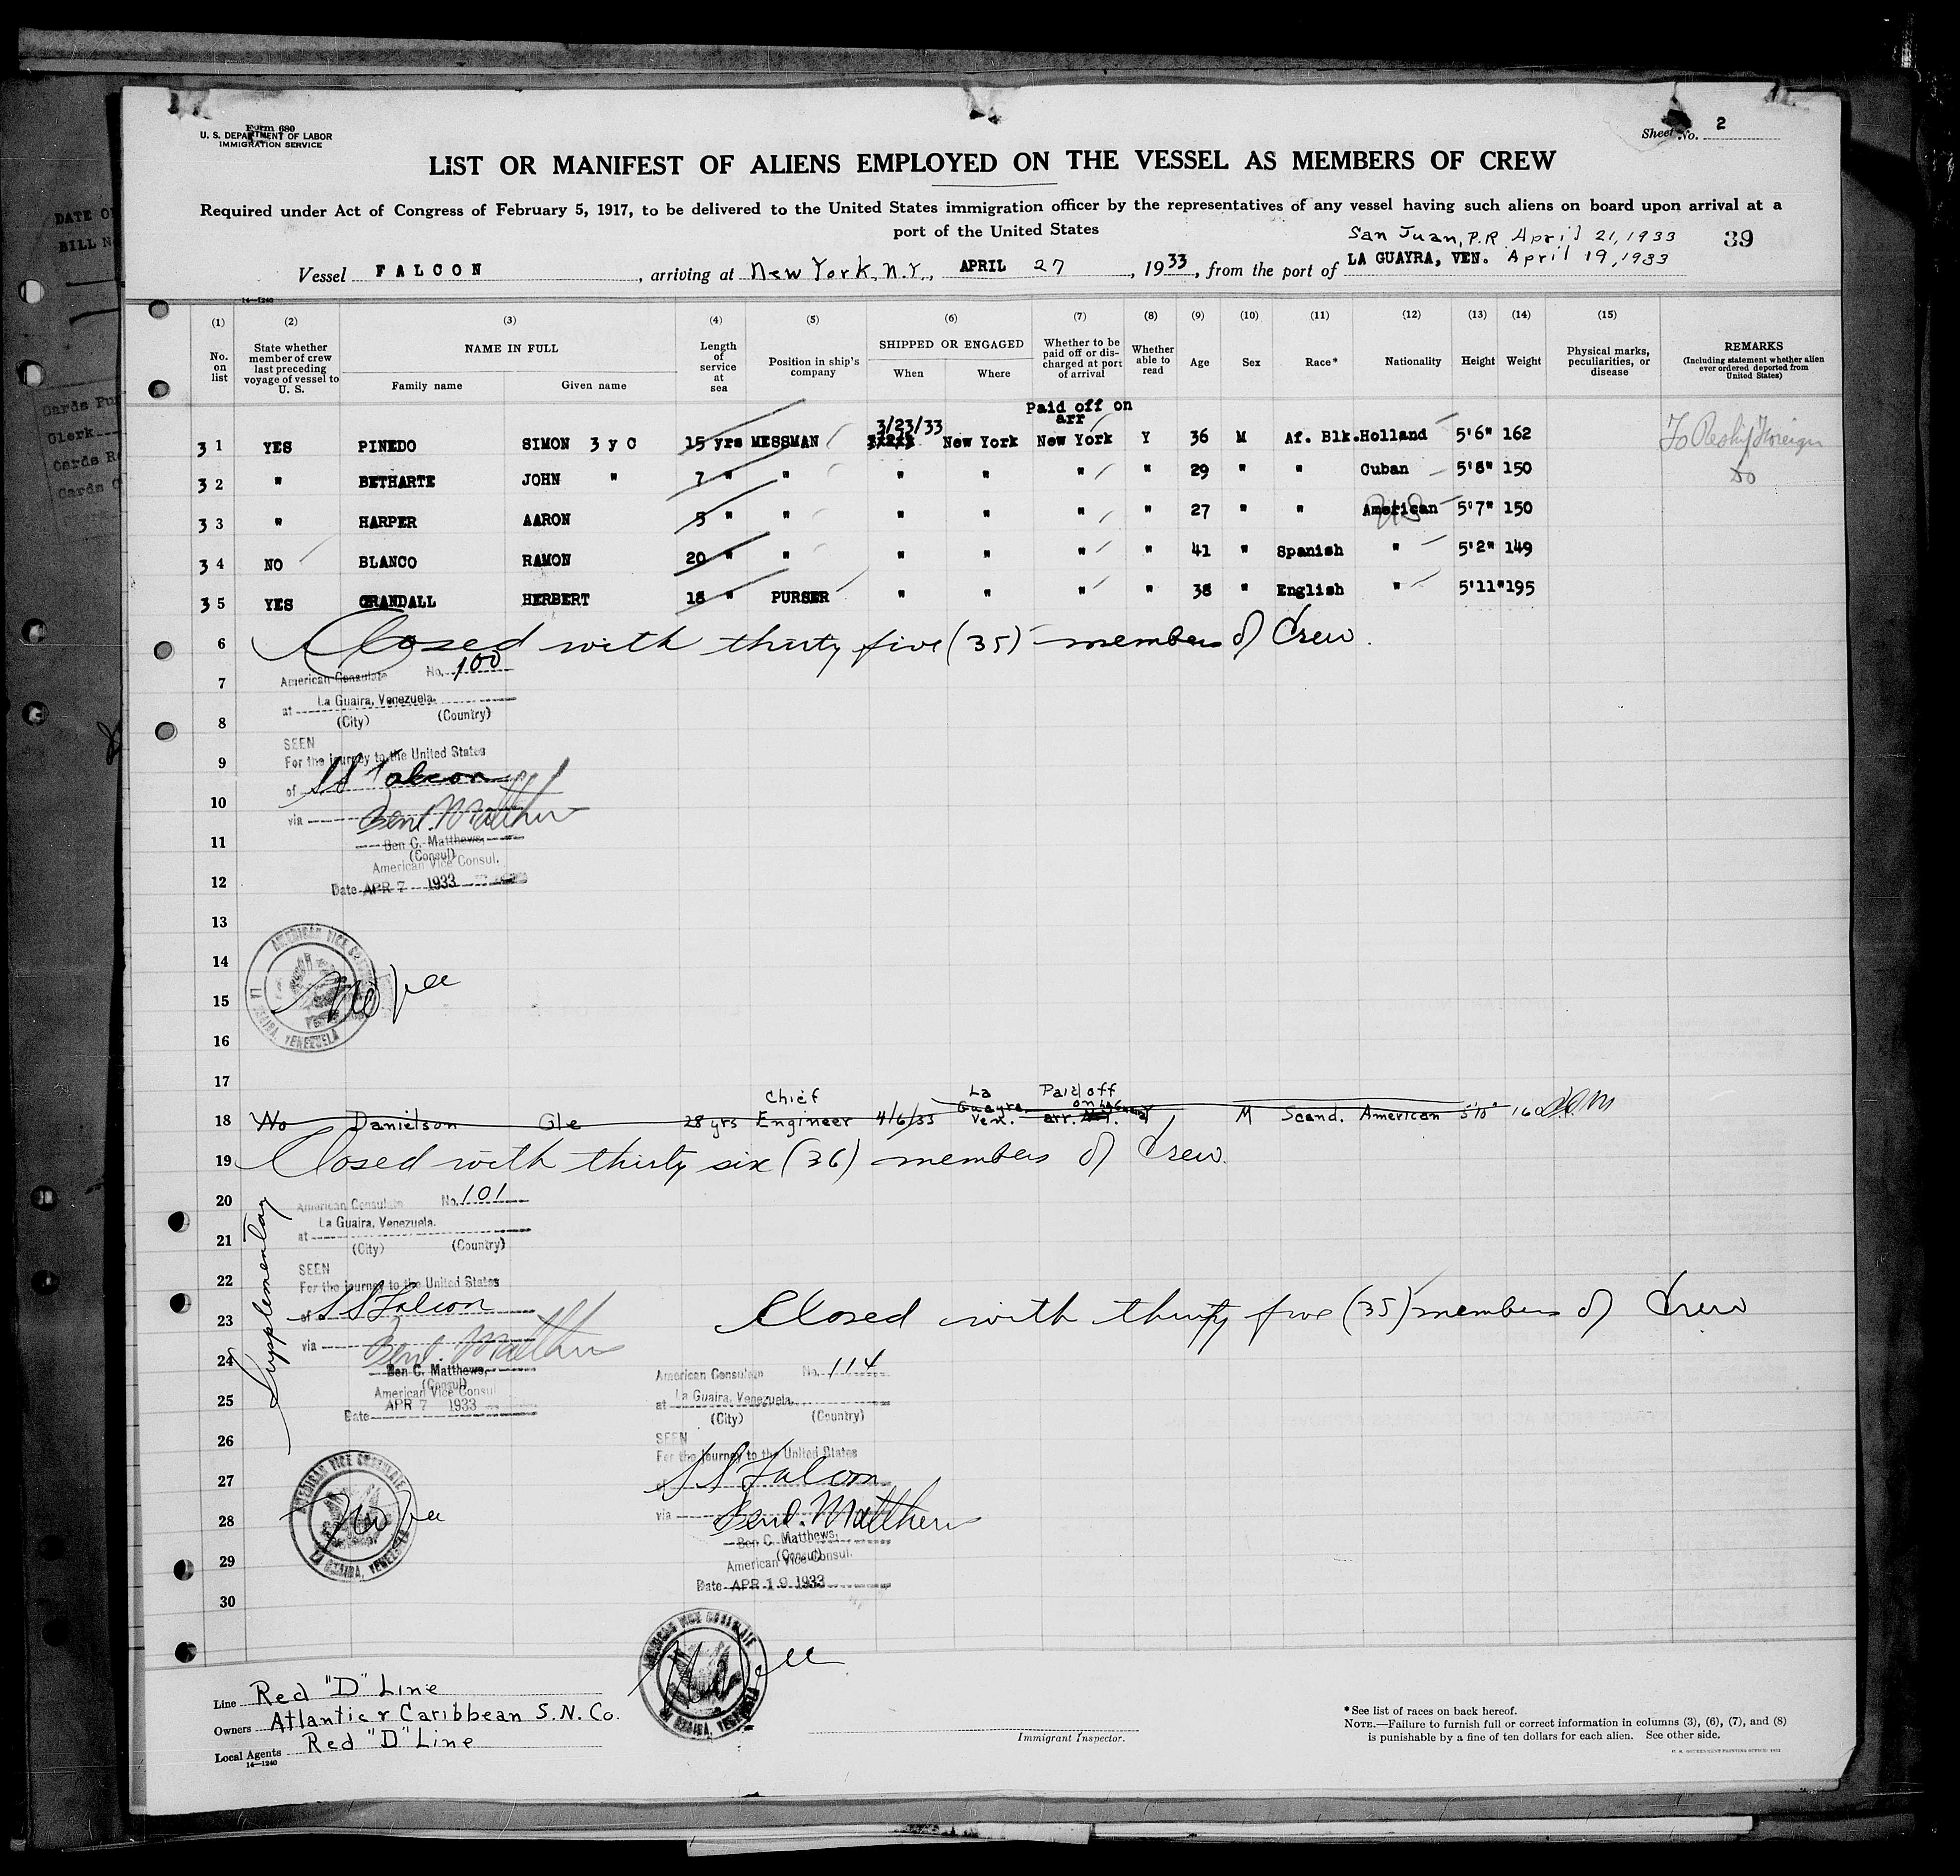 Form 680
U. S. DEPARTMENT OF LABOR
IMMIGRATION SERVICE
Sheet No. 2
LIST OR MANIFEST OF ALIENS EMPLOYED ON THE VESSEL AS MEMBERS OF CREW
Required under Act of Congress of February 5, 1917, to be delivered to the United States immigration officer by the representatives of any vessel having such aliens on board upon arrival at a
port of the United States
San Juan, P.R. April 21, 1933
39
Vessel FALCON, arriving at New York, N.Y., APRIL 27, 1933, from the port of LA GUAYRA, VEN. April 19, 1933
14—1240
(1) (2) (3) (4) (5) (6) (7) (8) (9) (10) (11) (12) (13) (14) (15)
No. on list
State whether member of crew last preceding voyage of vessel to U. S.
NAME IN FULL
Family name Given name
Length of service at sea
Position in ship's company
SHIPPED OR ENGAGED
When Where
Whether to be paid off or discharged at port of arrival
Whether able to read
Age
Sex
Race*
Nationality
Height
Weight
Physical marks, peculiarities, or disease
REMARKS
(Including statement whether alien ever ordered deported from United States)
Paid off on
arr
3/23/33
3 1 YES PINEDO SIMON 3 y C 15 yrs MESSMAN New York New York Y 36 M Af. Blk. Holland 5'6" 162 Foreign
3 2 " BETHARTE JOHN " 7 " " " " " " 29 " " Cuban 5'8" 150 Do
3 3 " HARPER AARON 5 " " " " " " 27 " " American 5'7" 150
3 4 NO BLANCO RAMON 20 " " " " " " 41 " Spanish " 5'2" 149
3 5 YES CRANDALL HERBERT 18 " PURSER " " " " 38 " English " 5'11" 195
6 Closed with thirty five (35) members of Crew.
7 American Consulate No. 100
at La Guaira, Venezuela.
8 (City) (Country)
SEEN
9 For the journey to the United States
of SS Falcon
10
via Ben C. Matthews
11 Ben C. Matthews,
(Consul)
American Vice Consul.
12 Date APR 7 1933
13
AMERICAN VICE CONSULATE
14
No fee
15
LA GUAIRA, VENEZUELA
16
17
Chief La Paid off
18 No Danielson Ole 28 yrs Engineer 4/6/33 Guayra Ven. on arr. M Scand. American 5'10" 160
19 Closed with thirty six (36) members of Crew.
Supplementary
20 American Consulate No. 101
La Guaira, Venezuela.
21 at
(City) (Country)
22 SEEN
For the journey to the United States
23 of SS Falcon
Closed with thirty five (35) members of Crew
via Ben C. Matthews
24 Ben C. Matthews,
(Consul)
American Vice Consul
25 Date APR 7 1933
American Consulate No. 114
at La Guaira, Venezuela.
(City) (Country)
26 SEEN
For the journey to the United States
27 of SS Falcon
28 via Ben C. Matthews
Ben C. Matthews,
(Consul)
29 American Vice Consul.
Date APR 19 1933
30
AMERICAN VICE CONSULATE
No fee
LA GUAIRA, VENEZUELA
AMERICAN VICE CONSULATE
No fee
LA GUAIRA, VENEZUELA
Line Red "D" Line
Owners Atlantic & Caribbean S.N. Co.
Local Agents Red "D" Line
14—1240
Immigrant Inspector.
*See list of races on back hereof.
NOTE.—Failure to furnish full or correct information in columns (3), (6), (7), and (8)
is punishable by a fine of ten dollars for each alien. See other side.